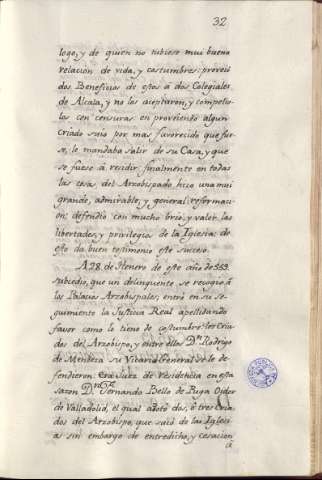 32
logo, y de quien no tubiese mui buena
relacion de vida, y costumbres: proveió
dos Beneficios de estos á dos Colegiales
de Alcala, y no los aceptaron, y compelio-
los con censuras en proveiendo algun
criado suio por mas favorecido que fue-
se, le mandaba salir de su Casa, y que
se fuese á residir, finalmente en todas
las cosas del Arzobispado hizo una mui
grande, admirable, y general reformaci-
on; defendió con mucho brio, y valor las
libertades, y privilegios de la Iglesia: de
esto da buen testimonio este suceso.
A 28. de Henero de este año de 553.
subcedio, que un delinquente se recogio á
los Palacios Arzobispales; entró en su se-
guimiento la Justicia Real apellidando
favor como lo tiene de costumbre: los Cria-
dos del Arzobispo, y entre ellos Dn. Rodrigo
de Mendoza su Vicario General se le de-
fendieron: era Juez de residencia en esta
sazon Dn. Fernando Bello de Puga Oidor
de Valladolid, el qual azotó dos, ó tres Cria-
dos del Arzobispo, que sacó de las Iglesi-
as sin embargo de entredicho, y cesacion